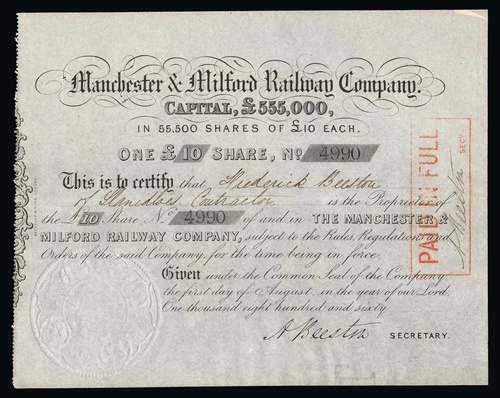 Manchester & Milford Railway Company.
CAPITAL, £555,000,
IN 55,500 SHARES OF £10 EACH.
ONE £10 SHARE, No 4990
This is to certify that Frederick Beeston
of Contractor is the Proprietor of
the £10 Share No 4990 of and in THE MANCHESTER &
MILFORD RAILWAY COMPANY, subject to the Rules, Regulations and
Orders of the said Company, for the time being in force.
Given under the Common Seal of the Company
the first day of August, in the year of our Lord,
One thousand eight hundred and sixty.
A Beeston SECRETARY.
PAID IN FULL
SECY